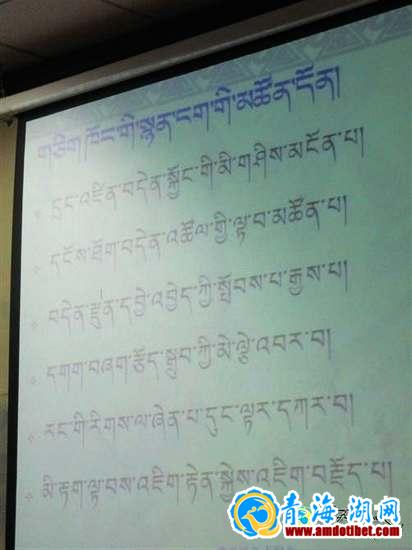 གཅིག ཁོང་གི་སྙན་ངག་གི་མཚོན་དོན།
དྲང་འཛིན་བདེན་སྐྱོང་གི་མི་གཤིས་མངོན་པ།
དངོས་ཐོག་བདེན་འཚོལ་གྱི་ལྟ་བ་མཚོན་པ།
བདེན་རྫུན་དབྱེ་འབྱེད་ཀྱི་སྤོབས་པ་རྒྱས་པ།
དགག་བཞག་རྩོད་སྒྲུབ་ཀྱི་མེ་ལྕེ་འབར་བ།
རང་གི་རིགས་ལ་ཞེན་པ་དུང་ལྟར་དཀར་བ།
མི་རྟག་ལྟ་བས་འཇིག་རྟེན་སྐྱེས་འཇིག་བརྗོད་པ།
青海湖网
www.amdotibet.com